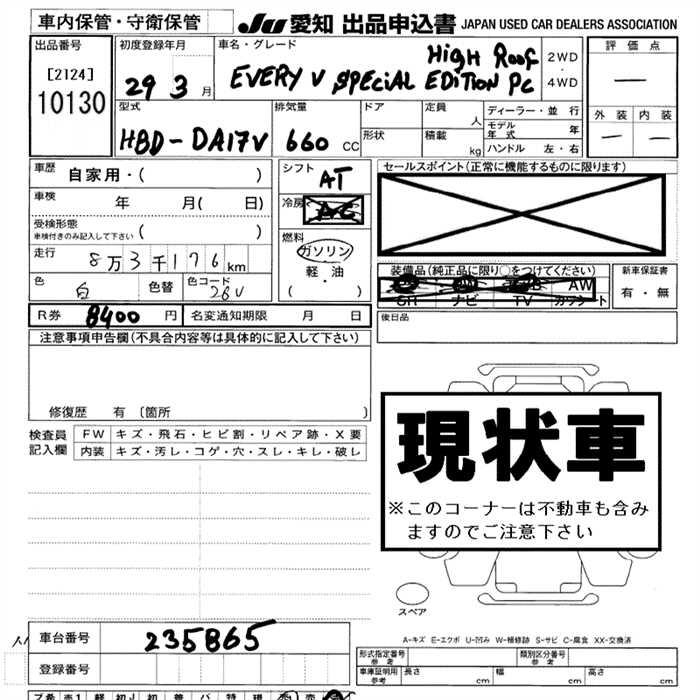 車内保管・守衛保管
JU 愛知 出品申込書 JAPAN USED CAR DEALERS ASSOCIATION
出品番号 初度登録年月 車名・グレード 評価点
[2124] 29 3 月 HigH Roof 2WD・4WD
10130 EVERY V SPECiAL EDiTiON PC
型式 排気量 ドア 定員 人 ディーラー・並行 外装 内装
モデル年式 年
HBD-DA17V 660 CC 形状 積載 kg ハンドル 左・右
車歴 自家用・( ) シフト AT セールスポイント(正常に機能するものに限ります)
車検 年 月( 日) 冷房
受検形態
車検付きのみ記入して下さい ( ) 燃料
走行 8万3千176km ガソリン
軽・油 装備品(純正品に限り○をつけてください) 新車保証書
色 白 色替 色コード 26U ( ・ ) AW 有・無
ナビ TV
R券 8400 円 名変通知期限 月 日 後日品
注意事項申告欄(不具合内容等は具体的に記入して下さい)
現状車
修復歴 有 〔箇所 〕
検査員 FW キズ・飛石・ヒビ割・リペア跡・X要
記入欄 内装 キズ・汚レ・コゲ・穴・スレ・キレ・破レ
※このコーナーは不動車も含み
ますのでご注意下さい
スペア
A-キズ E-エクボ U-凹み W-補修跡 S-サビ C-腐食 XX-交換済
車台番号 235865
登録番号
形式指定番号 参考 類別区分番号 参考
車庫証明用 参考 長さ cm 幅 cm 高さ cm